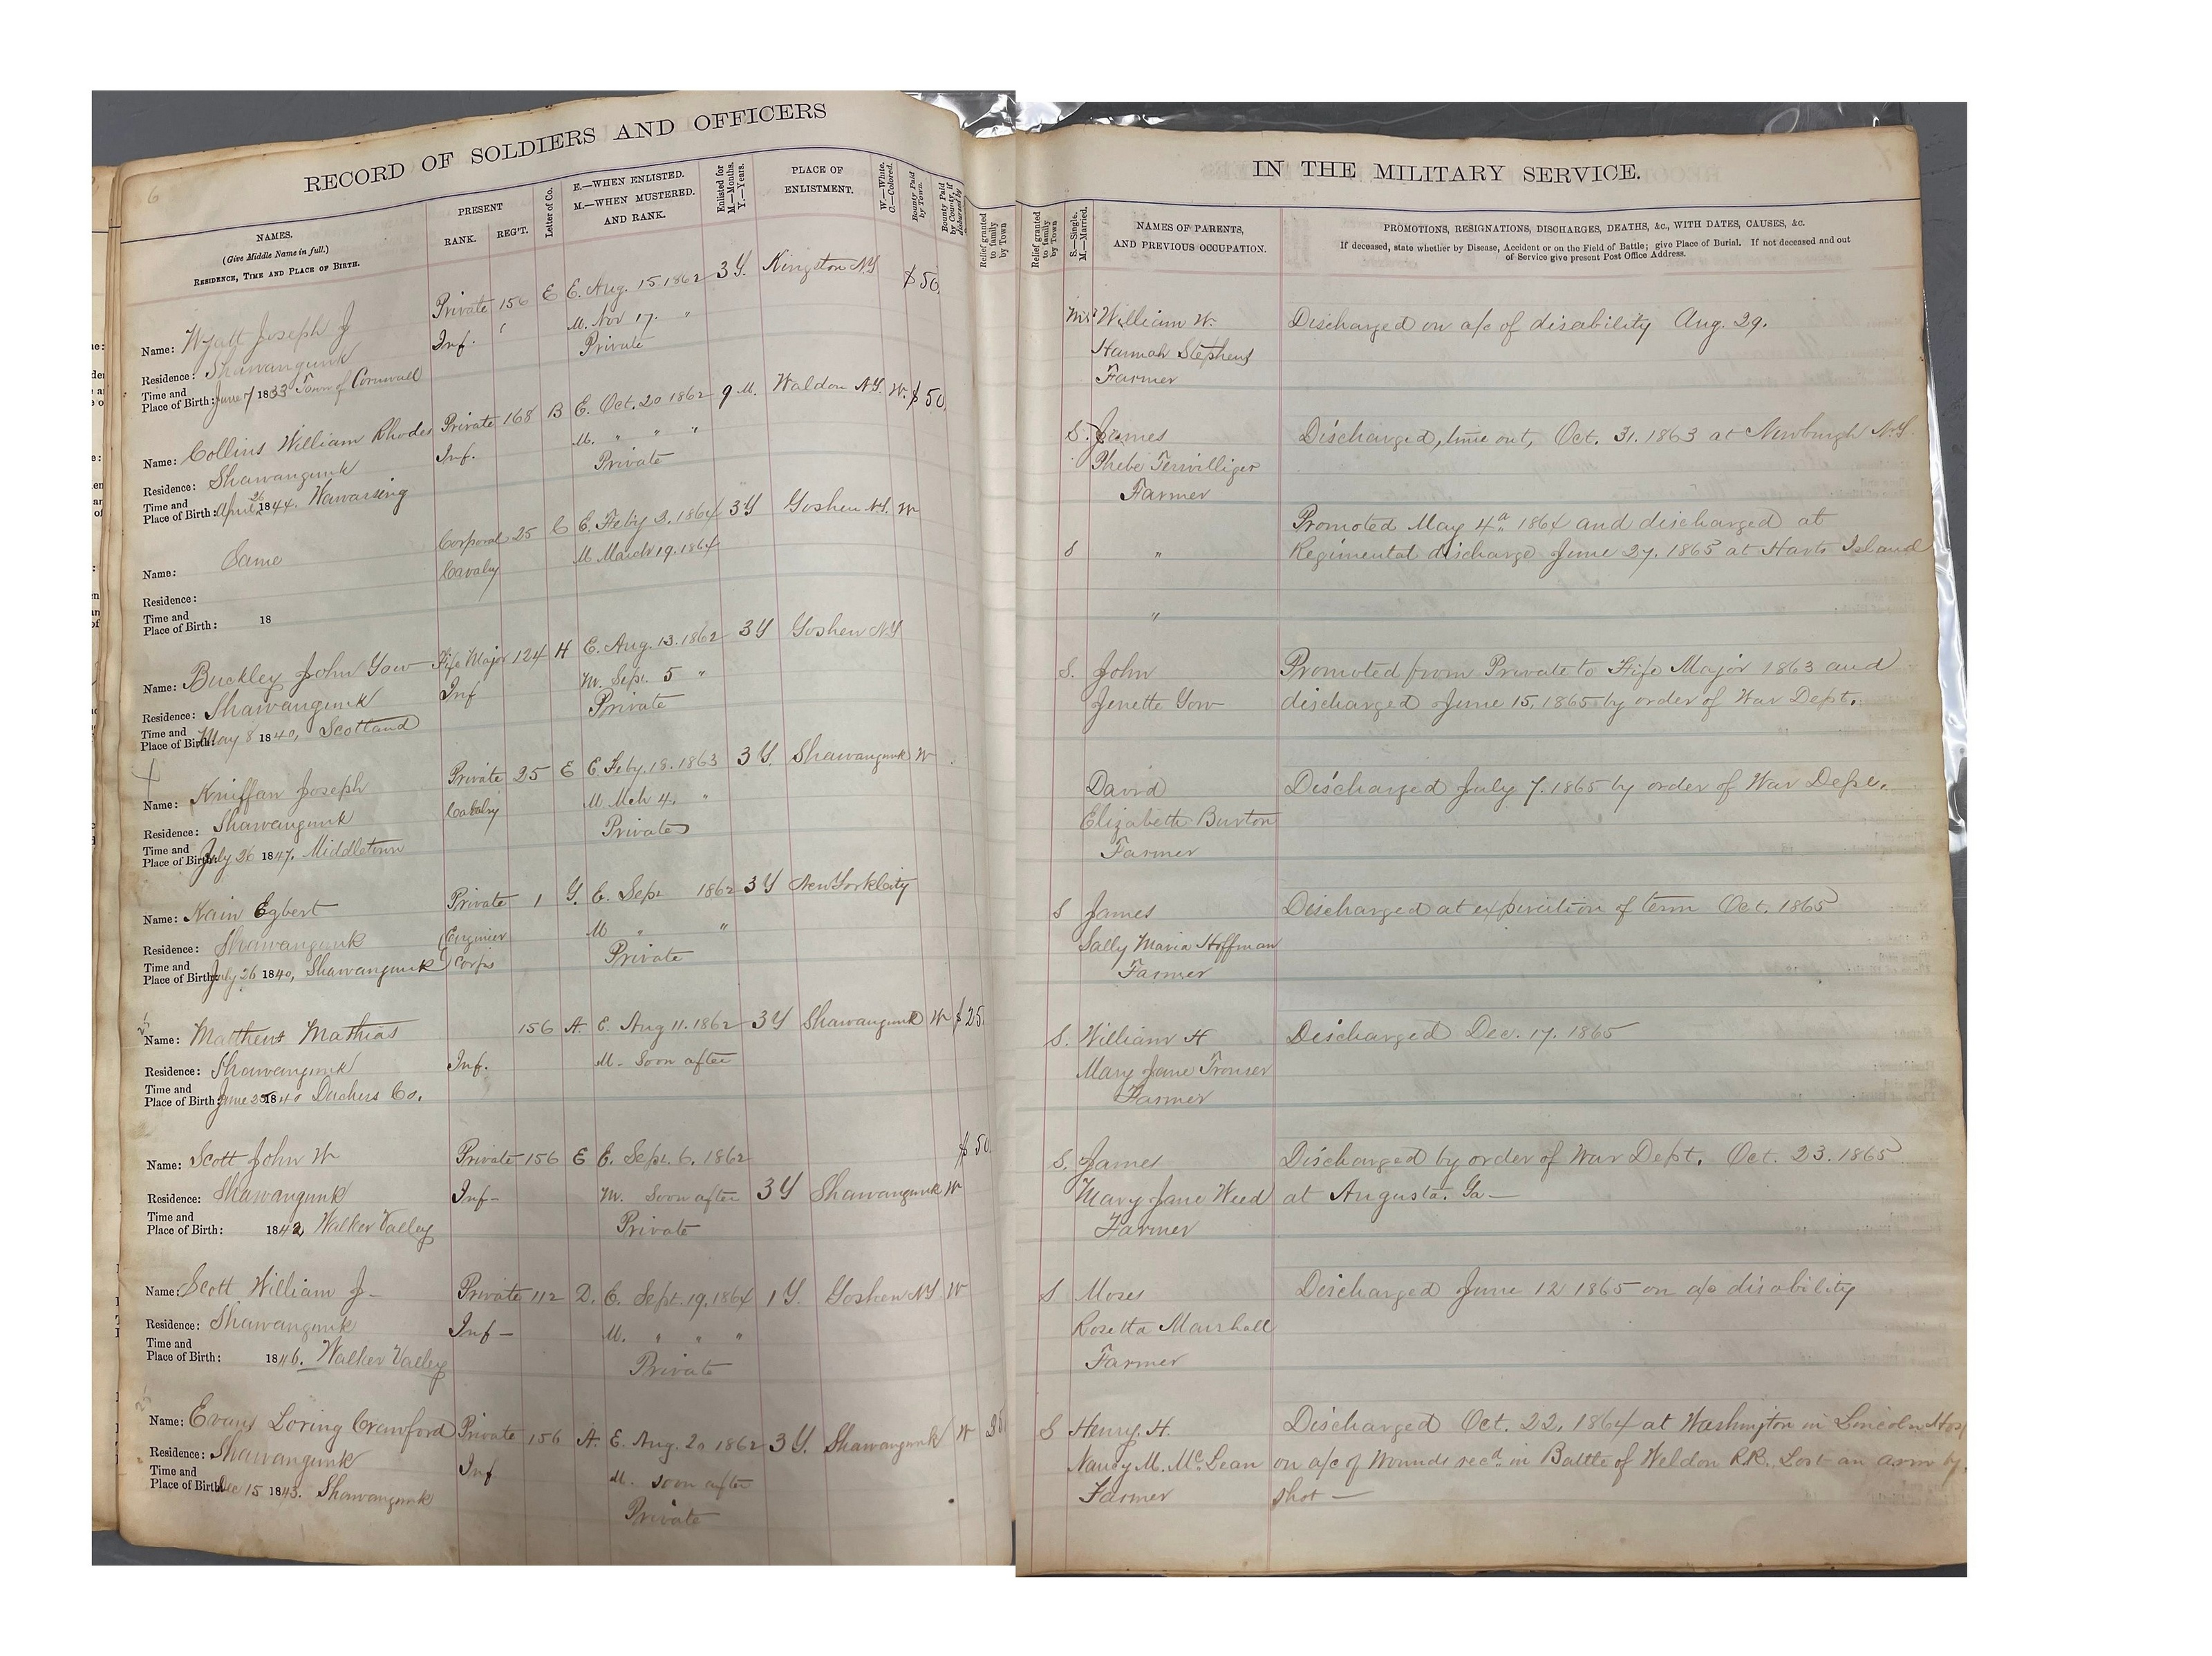 6
RECORD OF SOLDIERS AND OFFICERS
NAMES.
(Give Middle Name in full.)
RESIDENCE, TIME AND PLACE OF BIRTH.
PRESENT
RANK.
REG'T.
Letter of Co.
E.—WHEN ENLISTED.
M.—WHEN MUSTERED.
AND RANK.
Enlisted for
M.—Months.
Y.—Years.
PLACE OF
ENLISTMENT.
W.—White.
C.—Colored.
Bounty Paid
by Town.
Bounty Paid
by County, if
disbursed by
Relief granted
to family
by Town
Private 156 E E. Aug. 15. 1862 3 Y. Kingston N.Y. $50.
Name: Wyatt Joseph J
Inf. M. Nov 17. "
Residence: Shawangunk
Private
Time and
Place of Birth: June 7 1833 Town of Cornwall
Private 168 B E. Oct. 20 1862 9 M. Waldon N.Y. W. $50.
Name: Collins William Rhodes
Inf. M. " " "
Residence: Shawangunk
Private
Time and
Place of Birth: April 26 1844. Wawarsing
Corporal 25 C E. Feb'y 2. 1864 3 Y Goshen N.Y. W
Name: Same
Cavalry M. March 19. 1864
Residence:
Time and
Place of Birth: 18
Fife Major 124 H E. Aug. 13. 1862 3 Y Goshen N.Y
Name: Buckley John Gow
Inf M. Sept. 5 "
Residence: Shawangunk
Private
Time and
Place of Birth: May 8 1840, Scotland
Private 25 E E. Feby. 18. 1863 3 Y. Shawangunk W
Name: Kniffan Joseph
Cavalry M. Mch 4. "
Residence: Shawangunk
Private
Time and
Place of Birth: July 26 1847. Middletown
Private 1 G. E. Sept 1862 3 Y New York City
Name: Kain Egbert
Engineer M " "
Residence: Shawangunk
Corps Private
Time and
Place of Birth: July 26 1840, Shawangunk
156 A. E. Aug 11. 1862 3 Y Shawangunk W $25.
Name: Matthews Mathias
Inf. M. Soon after
Residence: Shawangunk
Time and
Place of Birth: June 25 1840 Duchers Co.
$50
Name: Scott John W
Private 156 E E. Sept. 6. 1862
Residence: Shawangunk
Inf- M. Soon after 3 Y Shawangunk W
Time and
Place of Birth: 1842 Walker Valley
Private
Name: Scott William J-
Private 112 D. E. Sept. 19. 1864 1 Y. Goshen N.Y W
Residence: Shawangunk
Inf- M. " " "
Time and
Place of Birth: 1846. Walker Valley
Private
Name: Evans Loring Crawford Private 156 A. E. Aug. 20 1862 3 Y. Shawangunk W 25
Residence: Shawangunk
Inf M. soon after
Time and
Place of Birth: Dec 15 1843. Shawangunk
Private
IN THE MILITARY SERVICE.
Relief granted
to family
by Town
S.—Single.
M.—Married.
NAMES OF PARENTS,
AND PREVIOUS OCCUPATION.
PROMOTIONS, RESIGNATIONS, DISCHARGES, DEATHS, &c., WITH DATES, CAUSES, &c.
If deceased, state whether by Disease, Accident or on the Field of Battle; give Place of Burial. If not deceased and out
of Service give present Post Office Address.
William W. Discharged on a/c of disability Aug. 29.
Hannah Stephens
Farmer
S. James Discharged, time out, Oct. 31. 1863 at Newburgh N.Y.
Phebe Terwilliger
Farmer
Promoted May 4th 1864 and discharged at
S " Regimental discharge June 27. 1865 at Harts Island
"
S. John Promoted from Private to Fife Major 1863 and
Jenette Gow discharged June 15, 1865 by order of War Dept.
David Discharged July 7. 1865 by order of War Dept.
Elizabeth Burton
Farmer
S James Discharged at expiration of term Oct. 1865
Sally Maria Hoffman
Farmer
S. William H Discharged Dec. 17. 1865
Mary Jane Tronser
Farmer
S. James Discharged by order of War Dept. Oct. 23. 1865
Mary Jane Weed at Augusta. Ga—
Farmer
S Moses Discharged June 12 1865 on a/c disability
Rosetta Marshall
Farmer
S Henry. H. Discharged Oct. 22. 1864 at Washington in Lincoln Hos
Nancy M. McLean on a/c of Wounds recd. in Battle of Weldon R.R. Lost an arm by
Farmer shot—